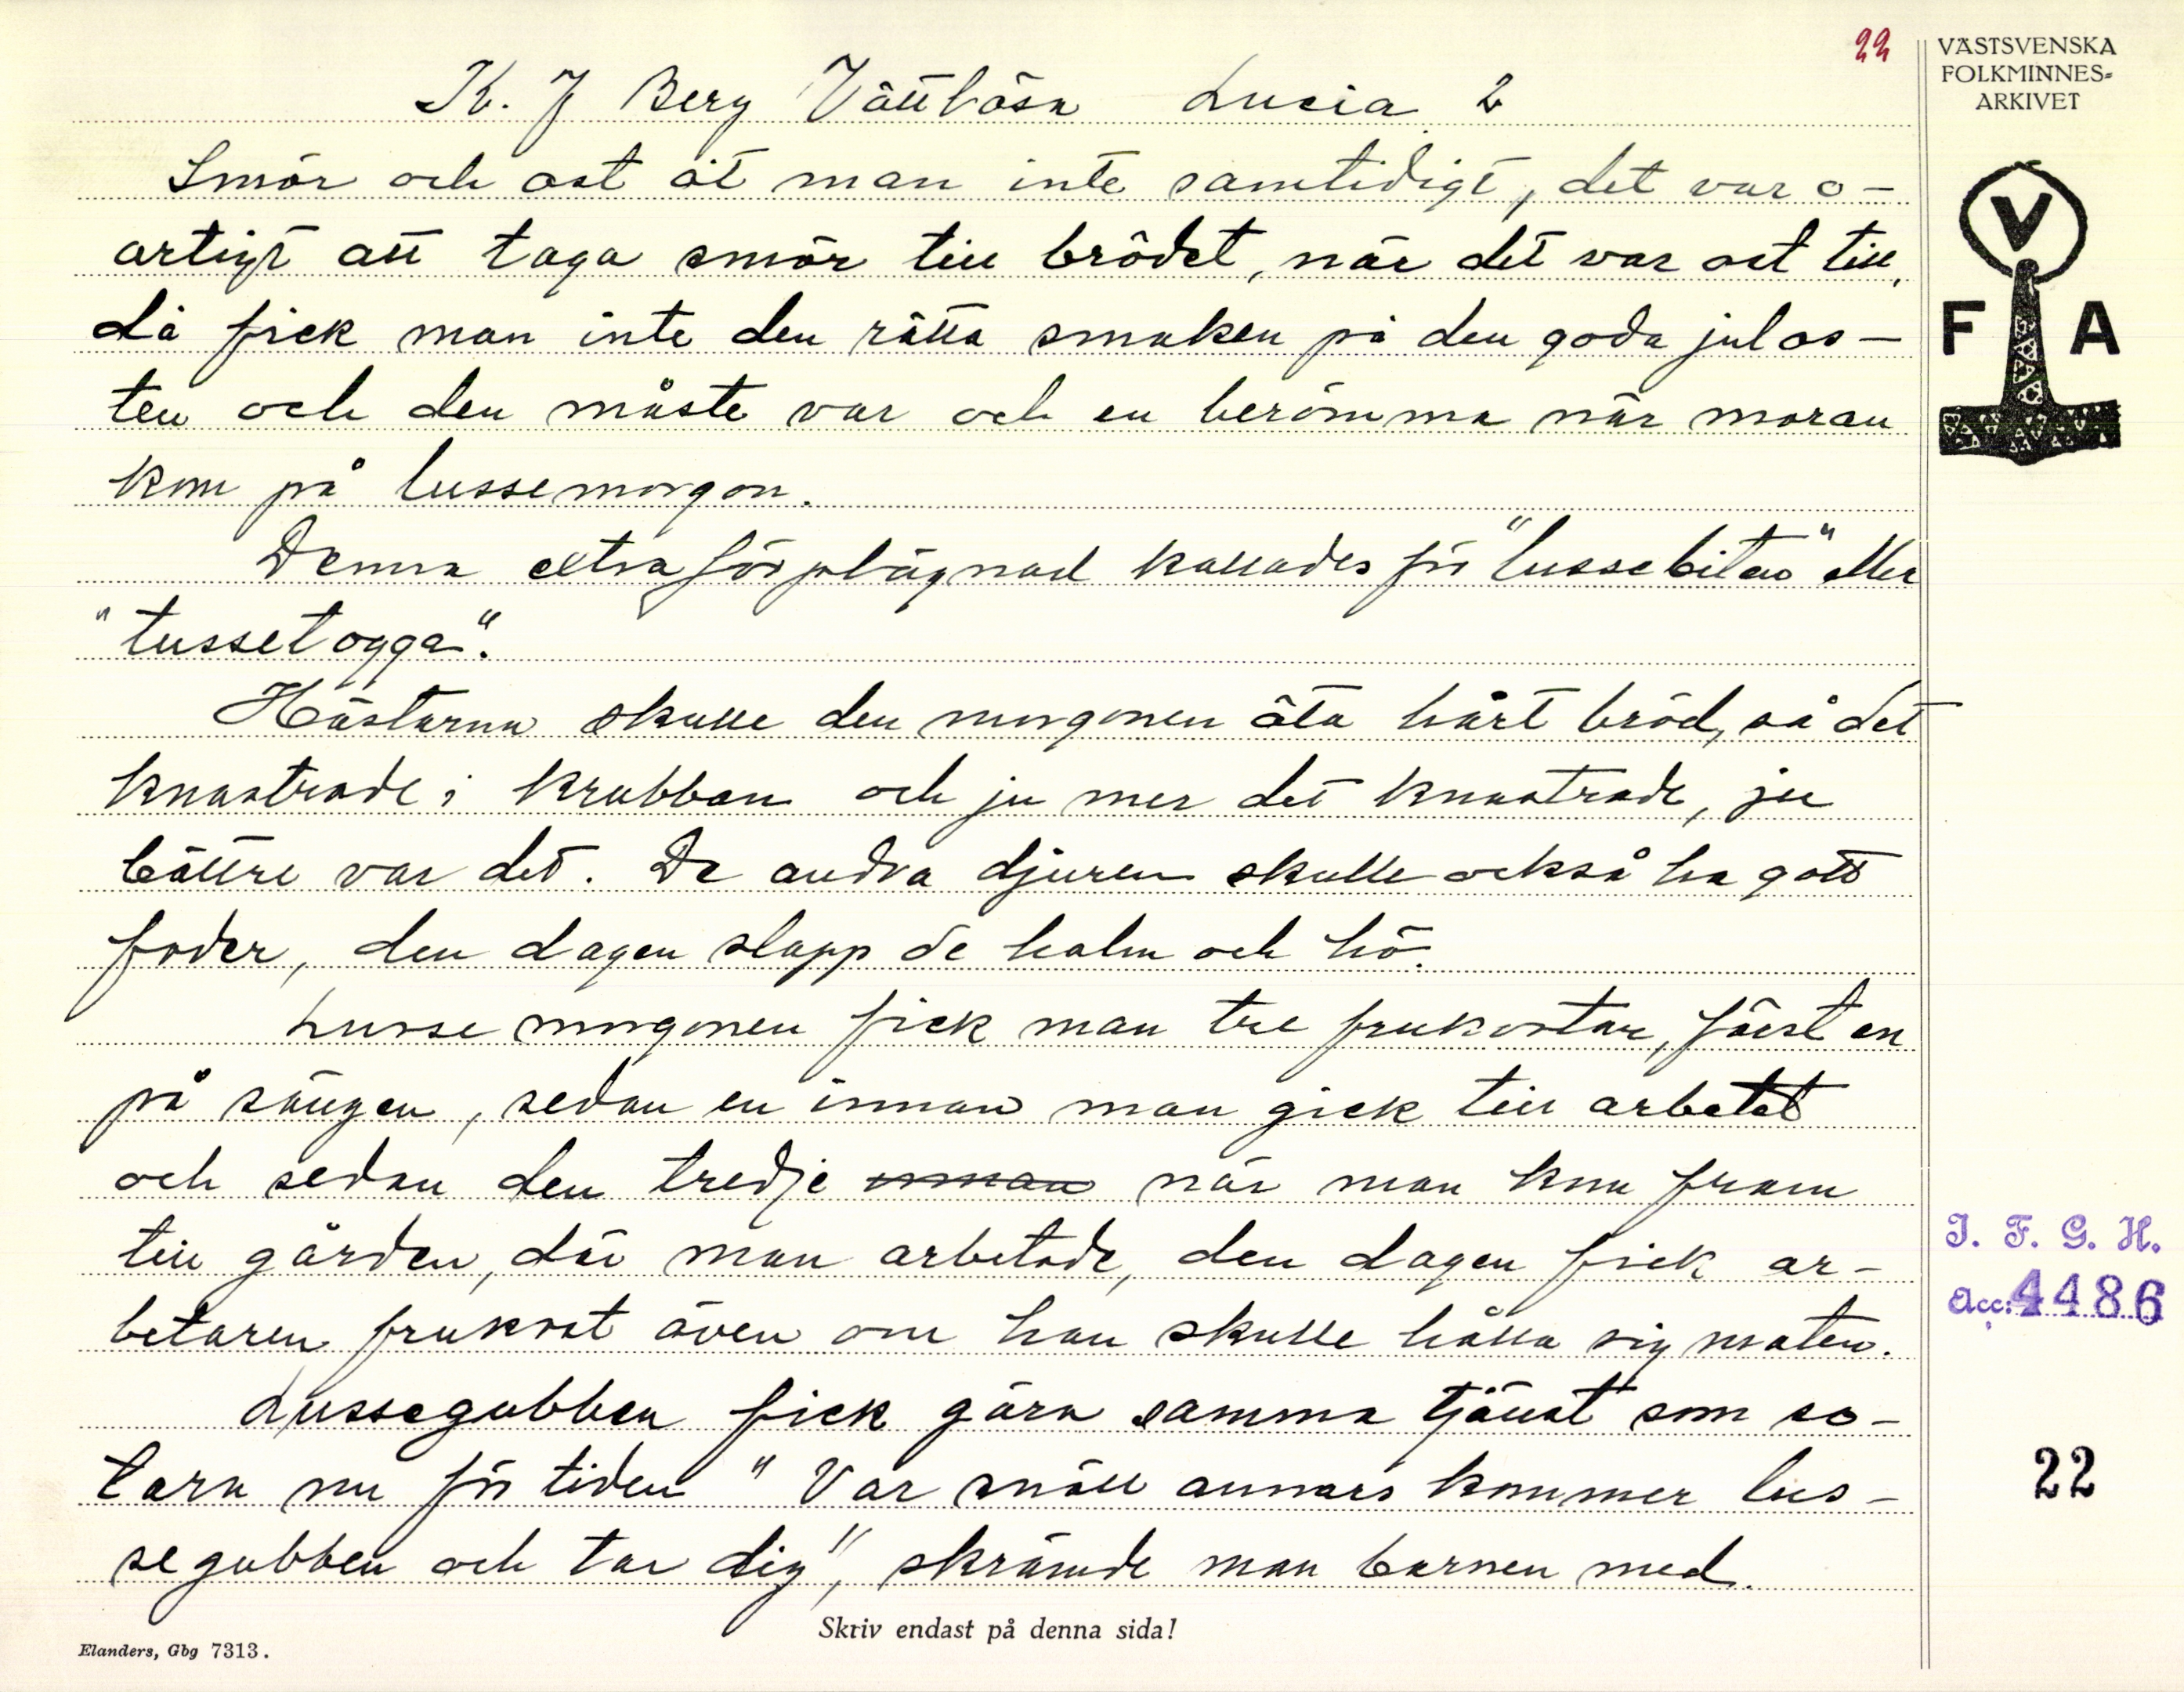 22
VÄSTSVENSKA
FOLKMINNES-
ARKIVET
V
F A
K. J Berg Vättlösa Lucia 2
Smör och ost åt man inte samtidigt, det var o-
artigt att taga smör till brödet, när det var ost till,
då fick man inte den rätta smaken på den goda julos-
ten och den måste var och en berömma när moran
kom på lussemorgon.
Denna extra förplägnad kallades för "lussebiten" eller
"lussetogga".
Hästarna skulle den morgonen äta hårt bröd, så det
knastrade i krubban och ju mer det knastrade, ju
bättre var det. De andra djuren skulle också ha gott
foder, den dagen slapp de halm och hö.
Lussemorgonen fick man tre frukostar, först en
på sängen, sedan en innan man gick till arbetet
och sedan den tredje innan när man kom fram
till gården, där man arbetade, den dagen fick ar-
betaren frukost även om han skulle hålla sig maten.
Lussegubben fick göra samma tjänst som so-
tarn nu för tiden " Var snäll annars kommer lus-
segubben och tar dig", skrämde man barnen med.
I. F. G. H.
Acc: 4486
22
Skriv endast på denna sida!
Elanders, Gbg 7313.